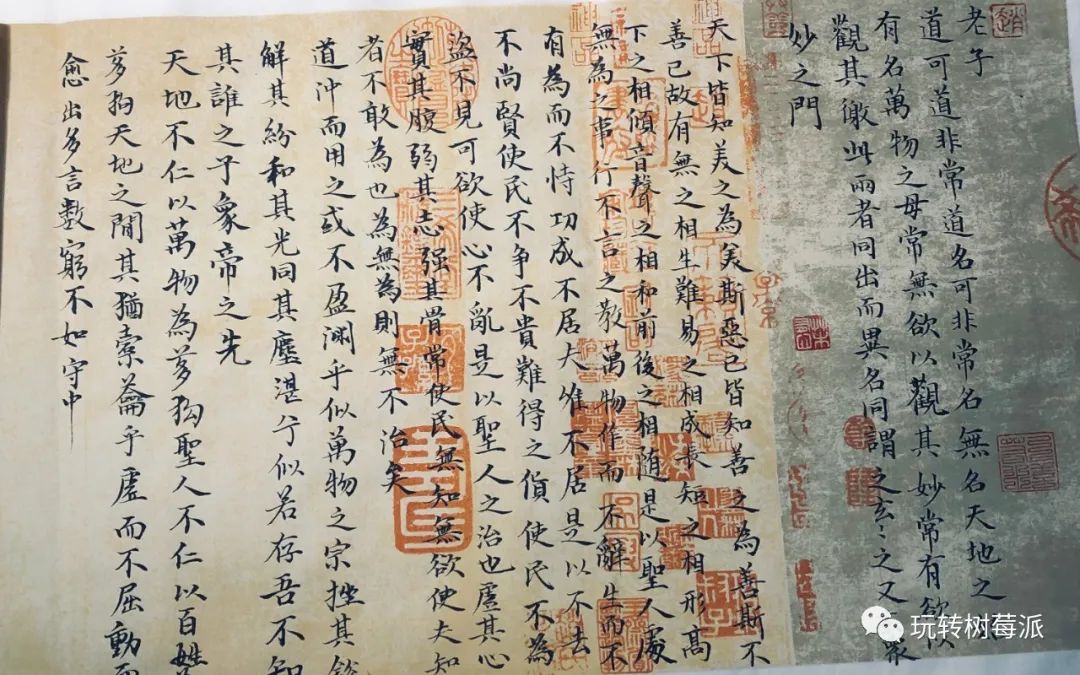 老子
道可道非常道名可非常名無名天地之
有名萬物之母常無欲以觀其妙常有欲以
觀其徼此兩者同出而異名同謂之玄〻之又衆
妙之門
天下皆知美之為美斯惡已皆知善之為善斯不
善已故有無之相生難易之相成長短之相形高
下之相傾音聲之相和前後之相随是以聖人處
無為之事行不言之教萬物作而不辭生而不
有為而不恃功成不居夫唯不居是以不去
不尚賢使民不争不貴難得之貨使民不為
盜不見可欲使心不亂是以聖人之治也虛其心
實其腹弱其志强其骨常使民無知無欲使夫知
者不敢為也為無為則無不治矣
道沖而用之或不盈渊乎似萬物之宗挫其銳
解其紛和其光同其塵湛兮似若存吾不知
其誰之子象帝之先
天地不仁以萬物為芻狗聖人不仁以百姓
芻狗天地之間其猶橐籥乎虛而不屈動而
愈出多言數窮不如守中
玩转树莓派